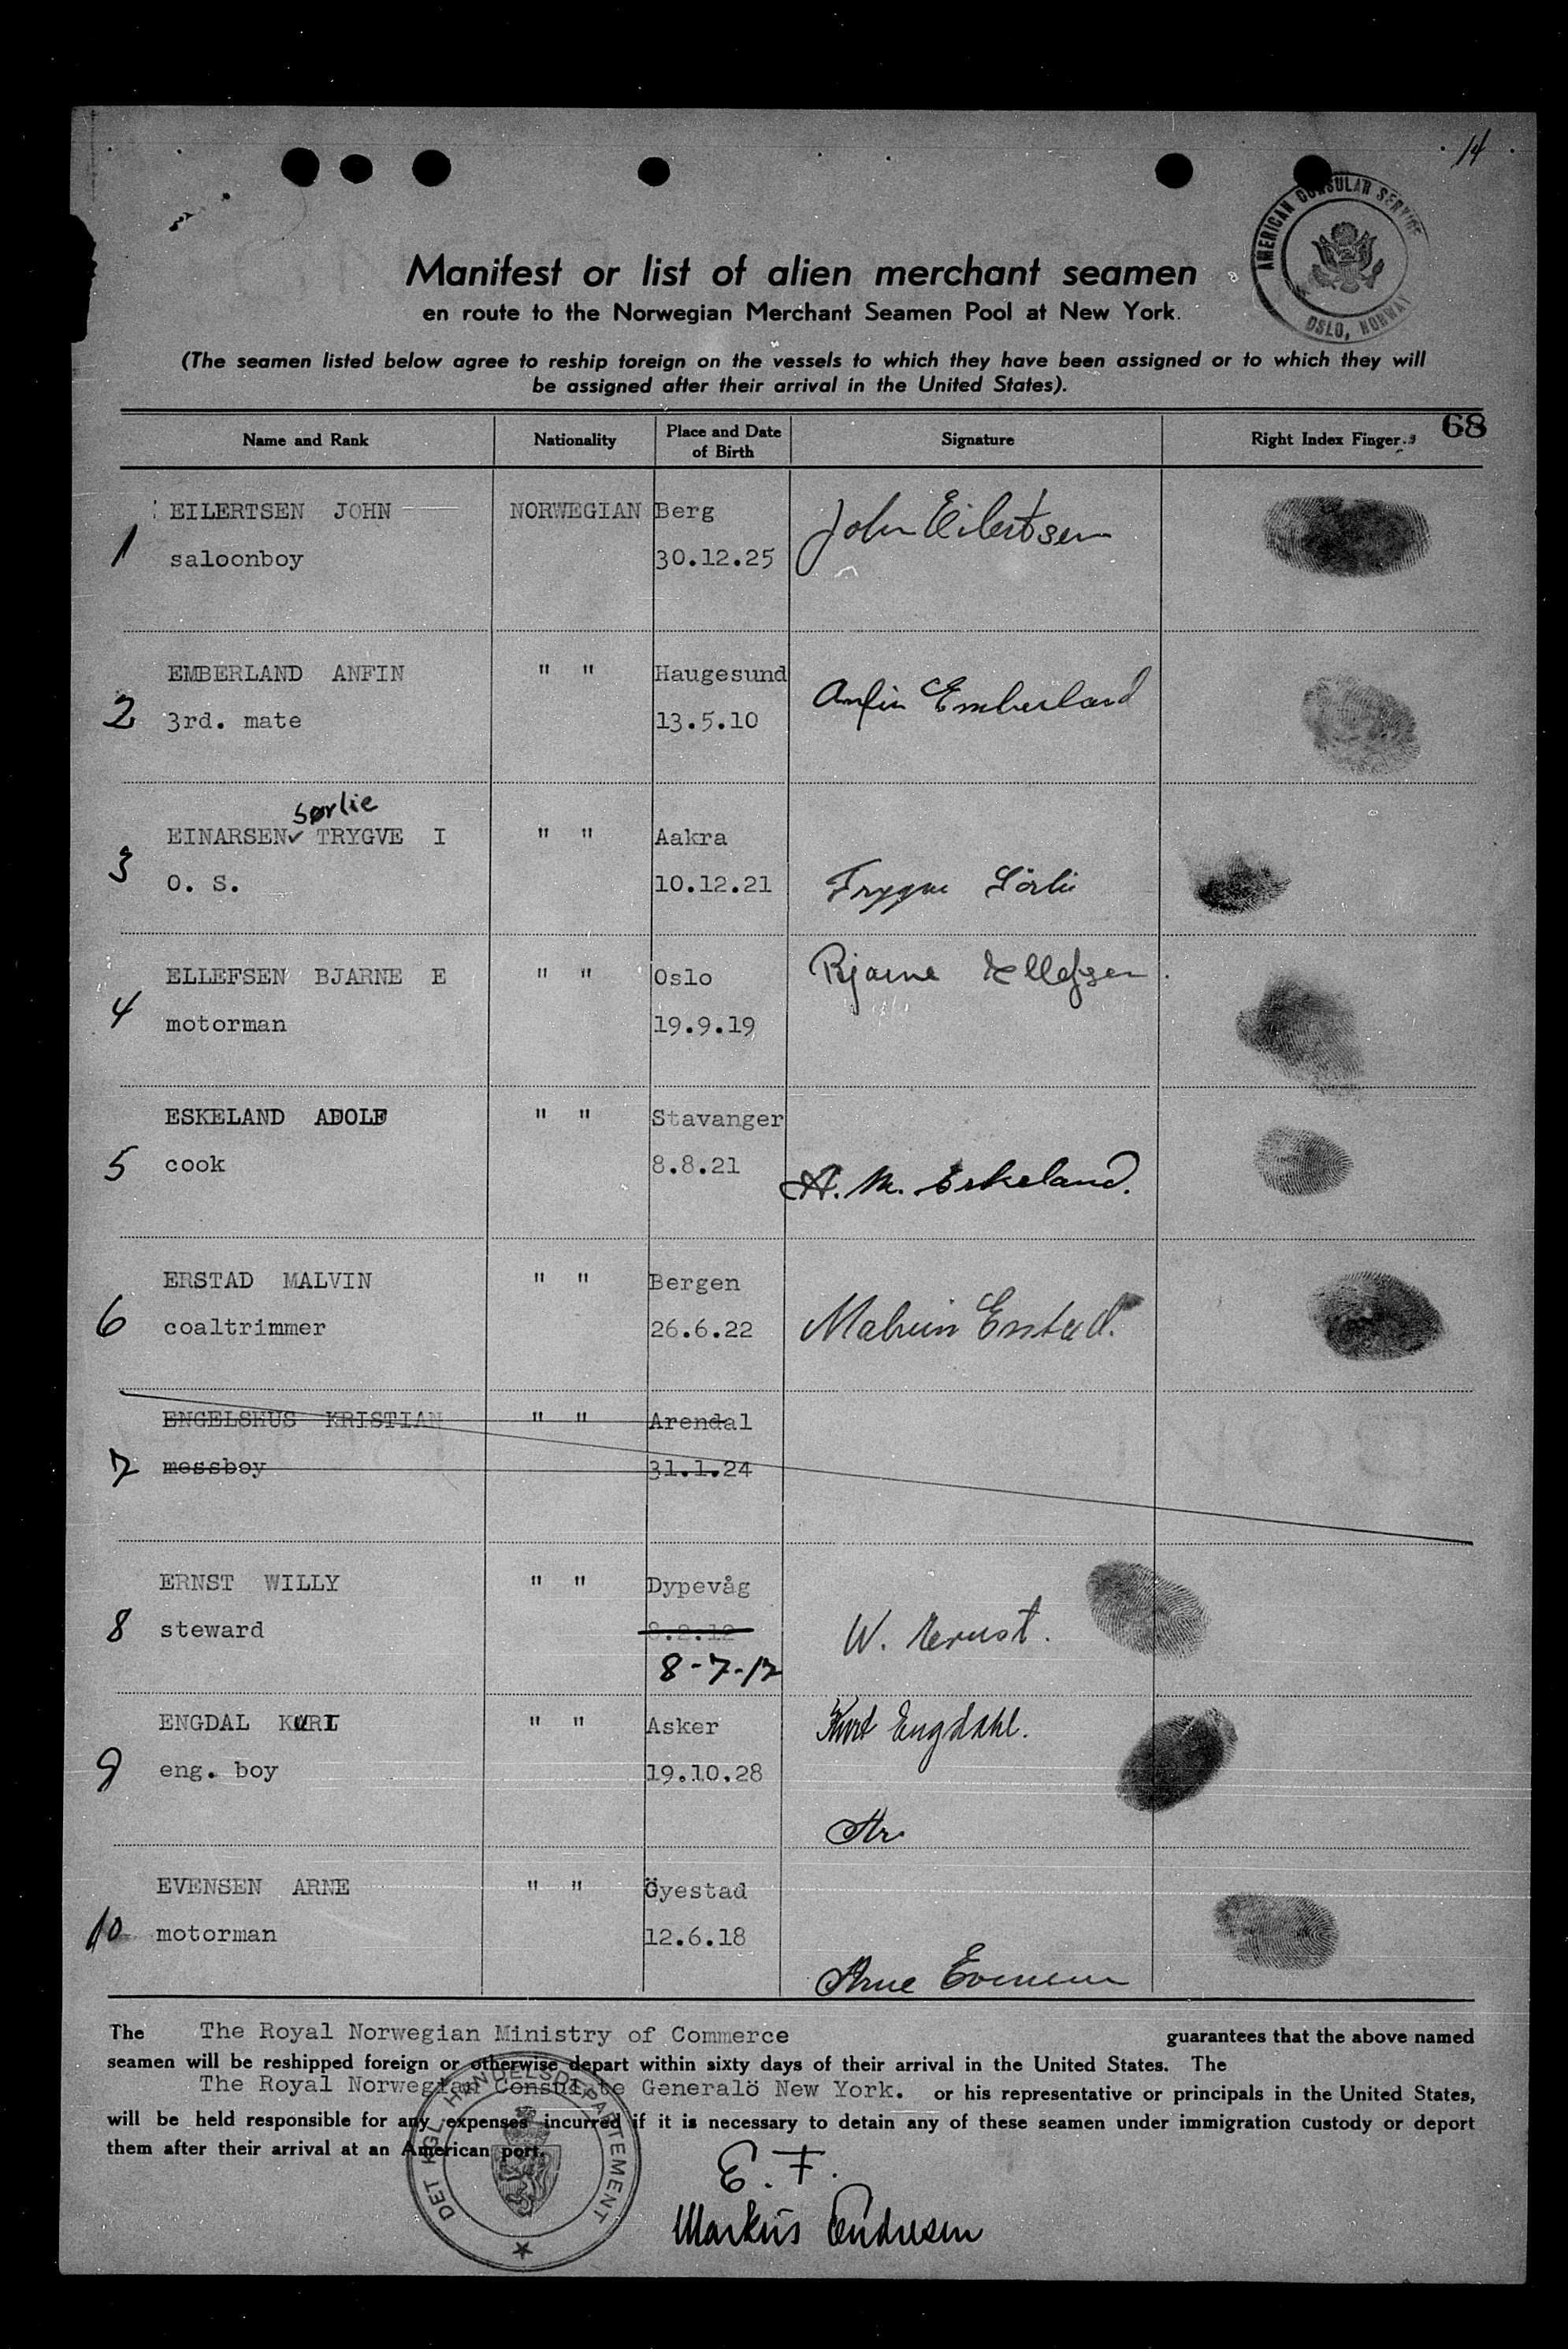 14
AMERICAN CONSULAR SERVICE
OSLO, NORWAY
Manifest or list of alien merchant seamen
en route to the Norwegian Merchant Seamen Pool at New York.
(The seamen listed below agree to reship foreign on the vessels to which they have been assigned or to which they will
be assigned after their arrival in the United States).
68
Name and Rank Nationality Place and Date of Birth Signature Right Index Finger.
1 EILERTSEN JOHN NORWEGIAN Berg John Eilertsen
saloonboy 30.12.25
EMBERLAND ANFIN " " Haugesund Anfin Emberland
2 3rd. mate 13.5.10
Sørlie
EINARSEN✓ TRYGVE I " " Aakra
3 O. S. 10.12.21 Trygve Sörlie
ELLEFSEN BJARNE E " " Oslo Bjarne Ellefsen
4 motorman 19.9.19
ESKELAND ADOLF " " Stavanger
5 cook 8.8.21 A. M. Eskeland.
ERSTAD MALVIN " " Bergen
6 coaltrimmer 26.6.22 Malvin Erstad.
ENGELSHUS KRISTIAN " " Arendal
7 messboy 31.1.24
ERNST WILLY " " Dypevåg
8 steward 8.2.12 W. Ernst.
8-7-12
ENGDAL KURT " " Asker Kurt Engdahl.
9 eng. boy 19.10.28
Ar
EVENSEN ARNE " " Öyestad
10 motorman 12.6.18
Arne Evensen
The The Royal Norwegian Ministry of Commerce guarantees that the above named
seamen will be reshipped foreign or otherwise depart within sixty days of their arrival in the United States. The
The Royal Norwegian Consulate Generalö New York. or his representative or principals in the United States,
will be held responsible for any expenses incurred if it is necessary to detain any of these seamen under immigration custody or deport
them after their arrival at an American port.
DET KGL. HANDELSDEPARTEMENT
E. F.
Markus Endresen